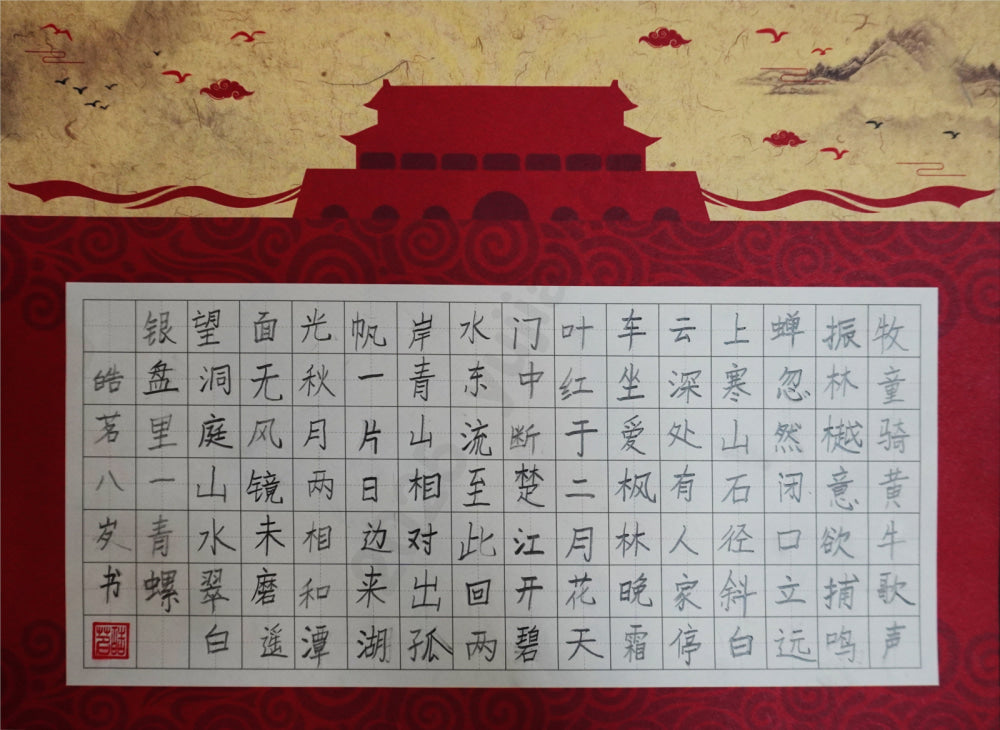 牧童骑黄牛歌声
振林樾意欲捕鸣
蝉忽然闭口立远
上寒山石径斜白
云深处有人家停
车坐爱枫林晚霜
叶红于二月花天
门中断楚江开碧
水东流至此回两
岸青山相对出孤
帆一片日边来湖
光秋月两相和潭
面无风镜未磨遥
望洞庭山水翠白
银盘里一青螺
皓茗八岁书